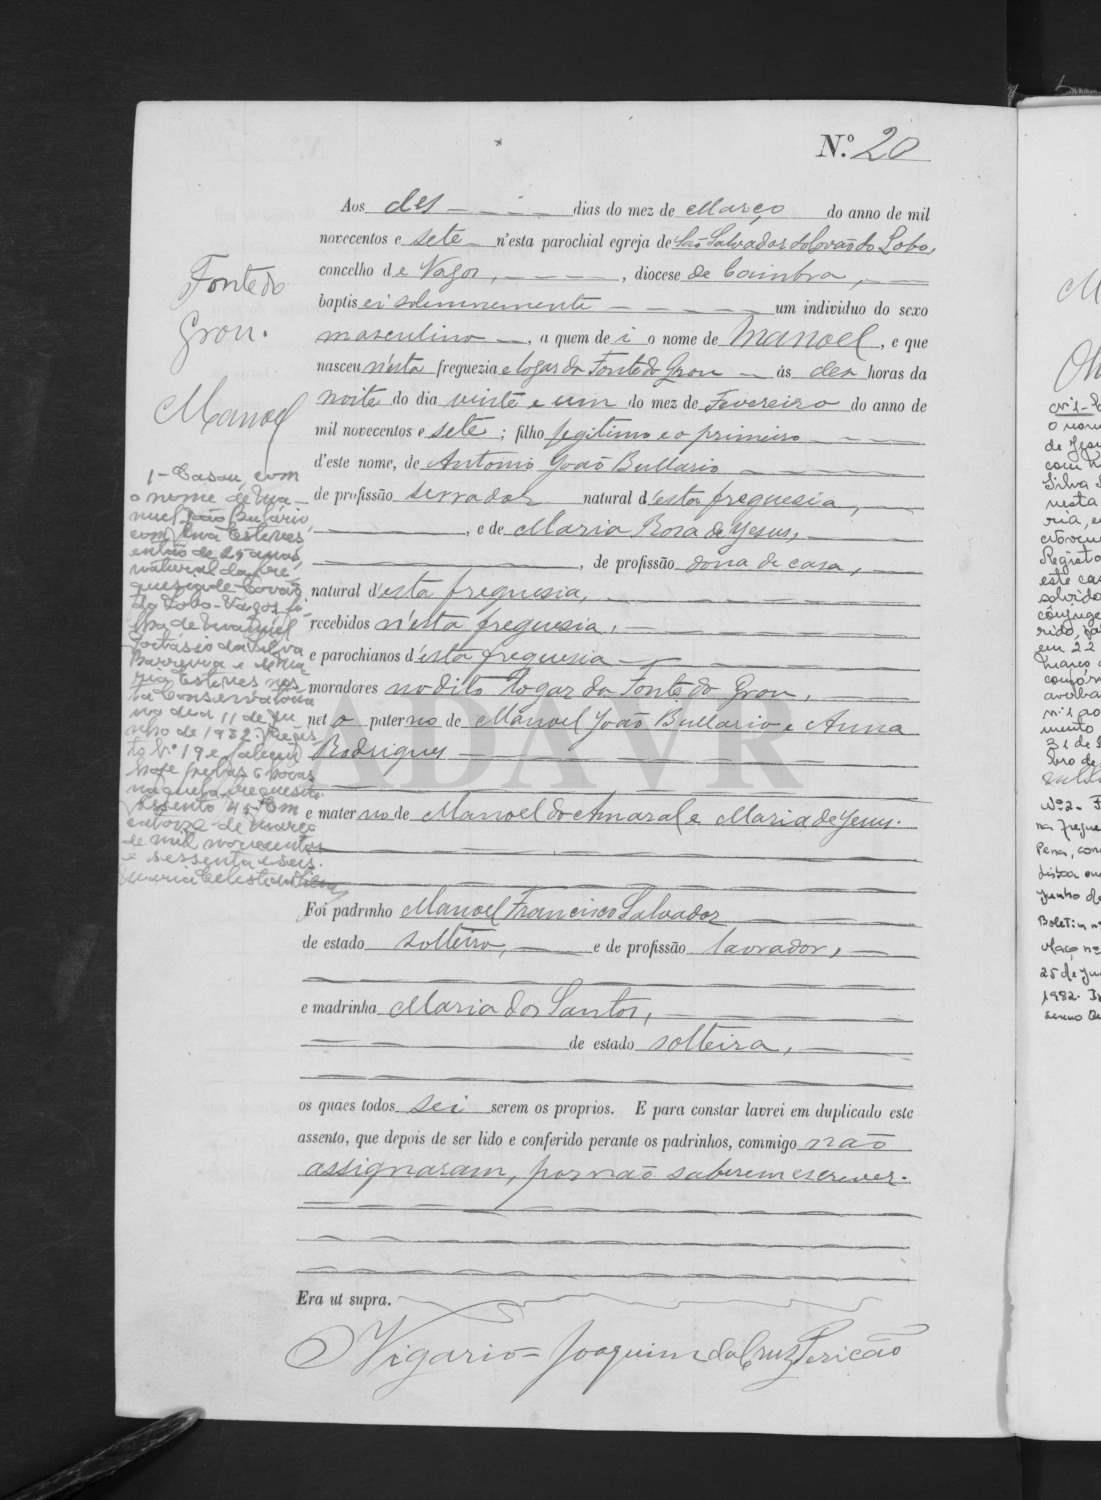 Nº 20
Aos des dias do mez de Março do anno de mil
novecentos e sete n'esta parochial egreja de São Salvador do Covão do Lobo,
concelho de Vagos, , diocese de Coimbra,
baptisei solemnemente um individuo do sexo
masculino , a quem dei o nome de Manoel , e que
nasceu n'esta freguezia e logar da Fonte do Grou ás dez horas da
noite do dia vinte e um do mez de Fevereiro do anno de
mil novecentos e sete ; filho legitimo e o primeiro
d'este nome, de Antonio João Bullario
de profissão serrador natural d'esta freguesia,
, e de Maria Rosa de Jesus,
, de profissão dona de casa,
natural d'esta freguesia,
recebidos n'esta freguesia,
e parochianos d'esta freguesia
moradores no dito logar da Fonte do Grou,
neto paterno de Manoel João Bullario e Anna
Rodrigues
e materno de Manoel do Amaral e Maria de Jesus.
Foi padrinho Manoel Francisco Salvador
de estado solteiro, e de profissão lavrador,
e madrinha Maria dos Santos,
de estado solteira,
os quaes todos sei serem os proprios. E para constar lavrei em duplicado este
assento, que depois de ser lido e conferido perante os padrinhos, commigo não
assignaram, por não saberem escrever.
Era ut supra.
O Vigario = Joaquim da Cruz Pericão
Fonte do
Grou.
Manoel
1 - Casou, com
o nome de Ma-
nuel João Bulário,
com Eva Esteves
então de 25 anos,
natural da fre-
guesia de Covão
do Lobo - Vagos fi-
lha de Manuel
da Silva
Barreira e Ma-
ria Esteves nes-
ta Conservatória
no dia 11 de Ju
nho de 1932. Regis
to Nº 19 e faleceu
hoje pelas 6 horas
naquela freguesia
Assento 45 - Em
catorze de Março
de mil novecentos
e sessenta e seis.
Maria Celeste da Silva
ADAVR
Nº1 -
O
de Jesu
com
Silva
nesta
ria, e
Registo
este cas
solvido
cônjuge
rido,
em 22
março
como
averba
nº 1 ao
mento
31 de
bro de
Nº2 - F
na fregue
Pena, con
Lisboa
Junho de
Boletim nº
Maço nº
25 de Ju
1982.